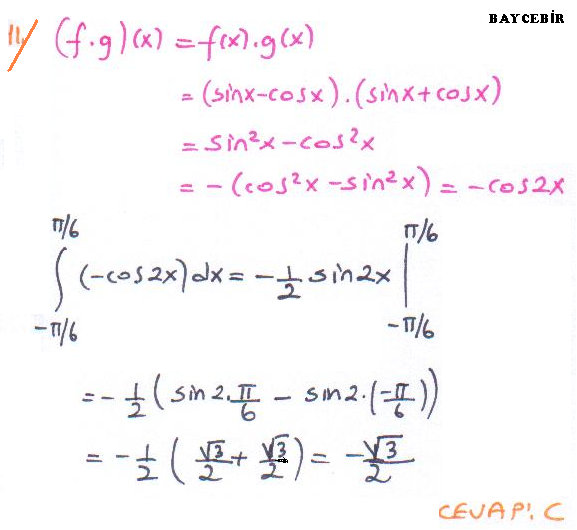 BAYCEBİR
11/ (f.g)(x) = f(x).g(x)
= (sinx-cosx).(sinx+cosx)
= sin²x - cos²x
= -(cos²x - sin²x) = -cos2x
π/6 π/6
∫ (-cos2x)dx = -1/2 sin2x |
-π/6 -π/6
= -1/2 (sin2.π/6 - sin2.(-π/6))
= -1/2 (√3/2 + √3/2) = -√3/2
CEVAP: C